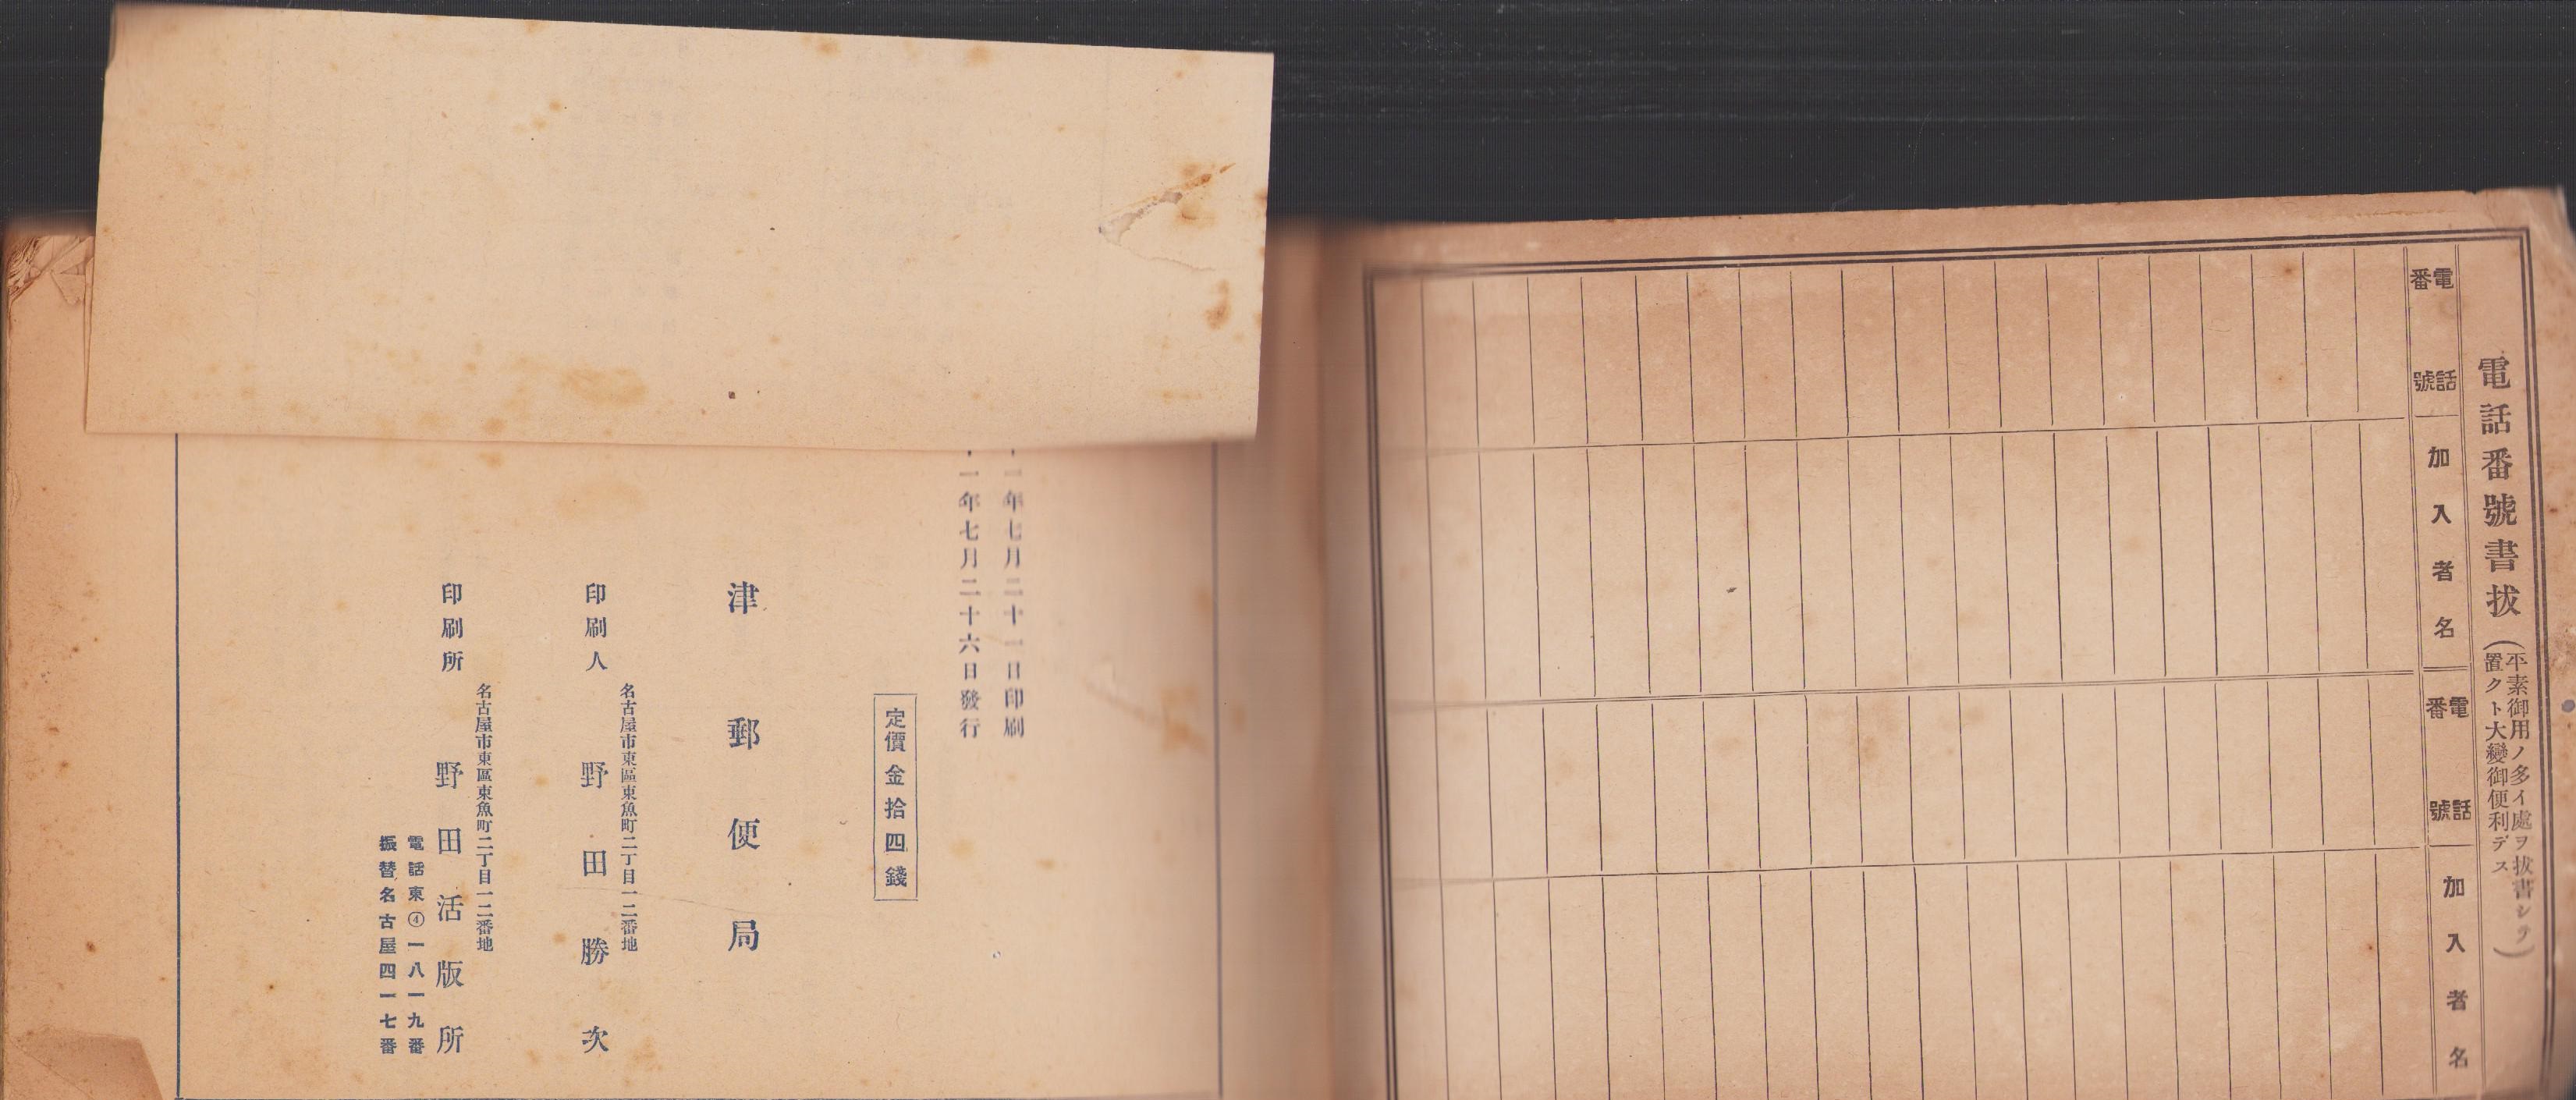 電話番號書抜
(平素御用ノ多イ處ヲ抜書シテ
置クト大變御便利デス)
電話番號
加入者名
電話番號
加入者名
一年七月二十一日印刷
一年七月二十六日發行
定價金拾四錢
津郵便局
名古屋市東區東魚町二丁目一二番地
印刷人 野田勝次
名古屋市東區東魚町二丁目一二番地
印刷所 野田活版所
電話東④一八一九番
振替名古屋四一七番